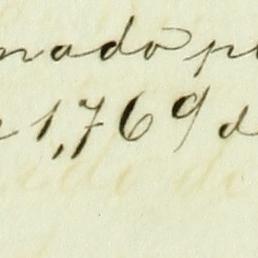 nado p
1,769 d